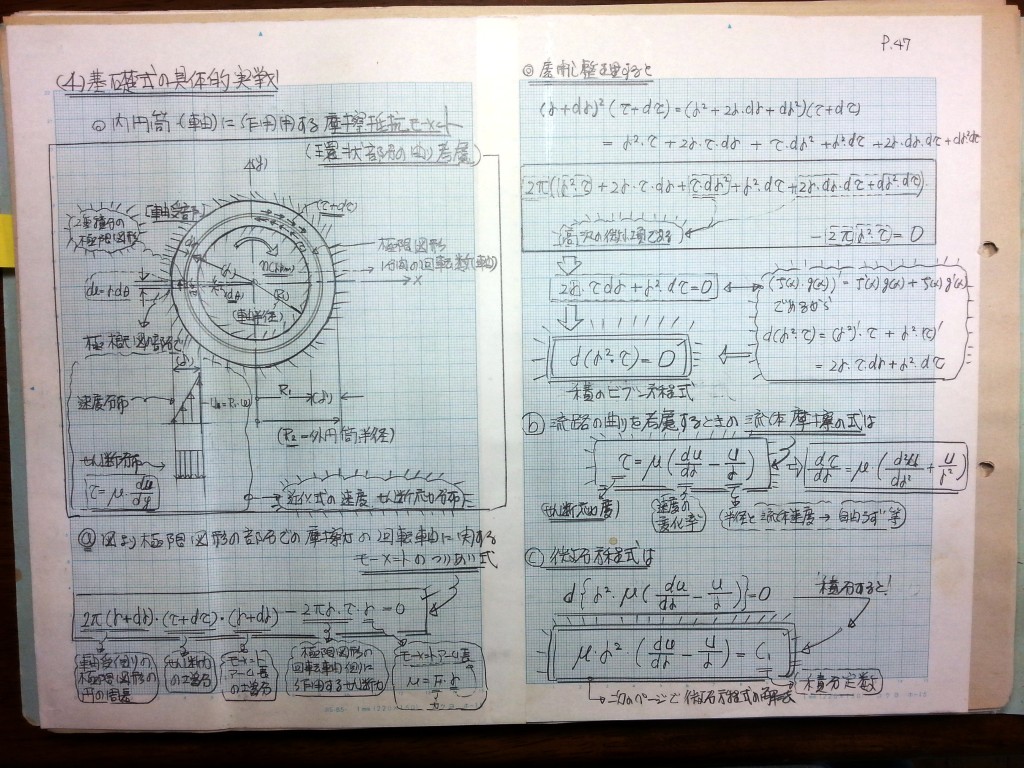 P.47
(4) 基礎式の具体的実戦
◎ 内円筒(軸)に作用用する摩擦抵抗モーメント
(環状部分の曲り考慮)
(y)
(τ+dτ)
[軸受部]
2重積分の
極限図形
極限図形
1分間の回転数(軸)
x
du=r・dθ
n(rpm)
(R₁)
(軸半径)
極限図の部分で
速度分布
R₁
(R₂=外円筒半径)
せん断分布
τ=μ・du/dy
近似式の速度 せん断応力分布に
ⓐ 図より極限図形の部分での摩擦力の回転軸に関する
モーメントのつりあい式
2π(r+dr)・(τ+dτ)・(r+dr) − 2πr・τ・r = 0
極限図形の
円の周長
せん断力
の2等分
モーメント
アーム長
の2等分
極限図形の
回転軸(回り)に
作用するせん断力
モーメントアーム長
◎ 展開し整理すると
(r+dr)²(τ+dτ)=(r²+2r・dr+dr²)(τ+dτ)
= r²・τ + 2r・τ・dr + τ・dr² + r²・dτ + 2r・dr・dτ + dr²・dτ
2π(r²・τ + 2r・τ・dr + τ・dr² + r²・dτ + 2r・dr・dτ + dr²・dτ)
(高)次の微小項である
− 2π r²・τ = 0
2r・τdr + r²dτ = 0
(f(x)・g(x))' = f'(x)g(x) + f(x)g'(x)
であるから
d(r²・τ) = (r²)'・τ + r²・(τ)'
= 2r・τ・dr + r²・dτ
d(r²・τ) = 0
積のビブン方程式
ⓑ 流路の曲りを考慮するときの流体摩擦の式は
τ = μ(du/dr − u/r) ⇒ dτ/dr = μ(d²u/dr² + u/r²)
(せん断応力度)
速度の
変化率
半径と流体速度 → 自由うず等
ⓒ 微分方程式は
d{r²・μ(du/dr − u/r)} = 0
積分すると!
μ・r²(du/dr − u/r) = C₁
積分定数
次のページで微分方程式の解表